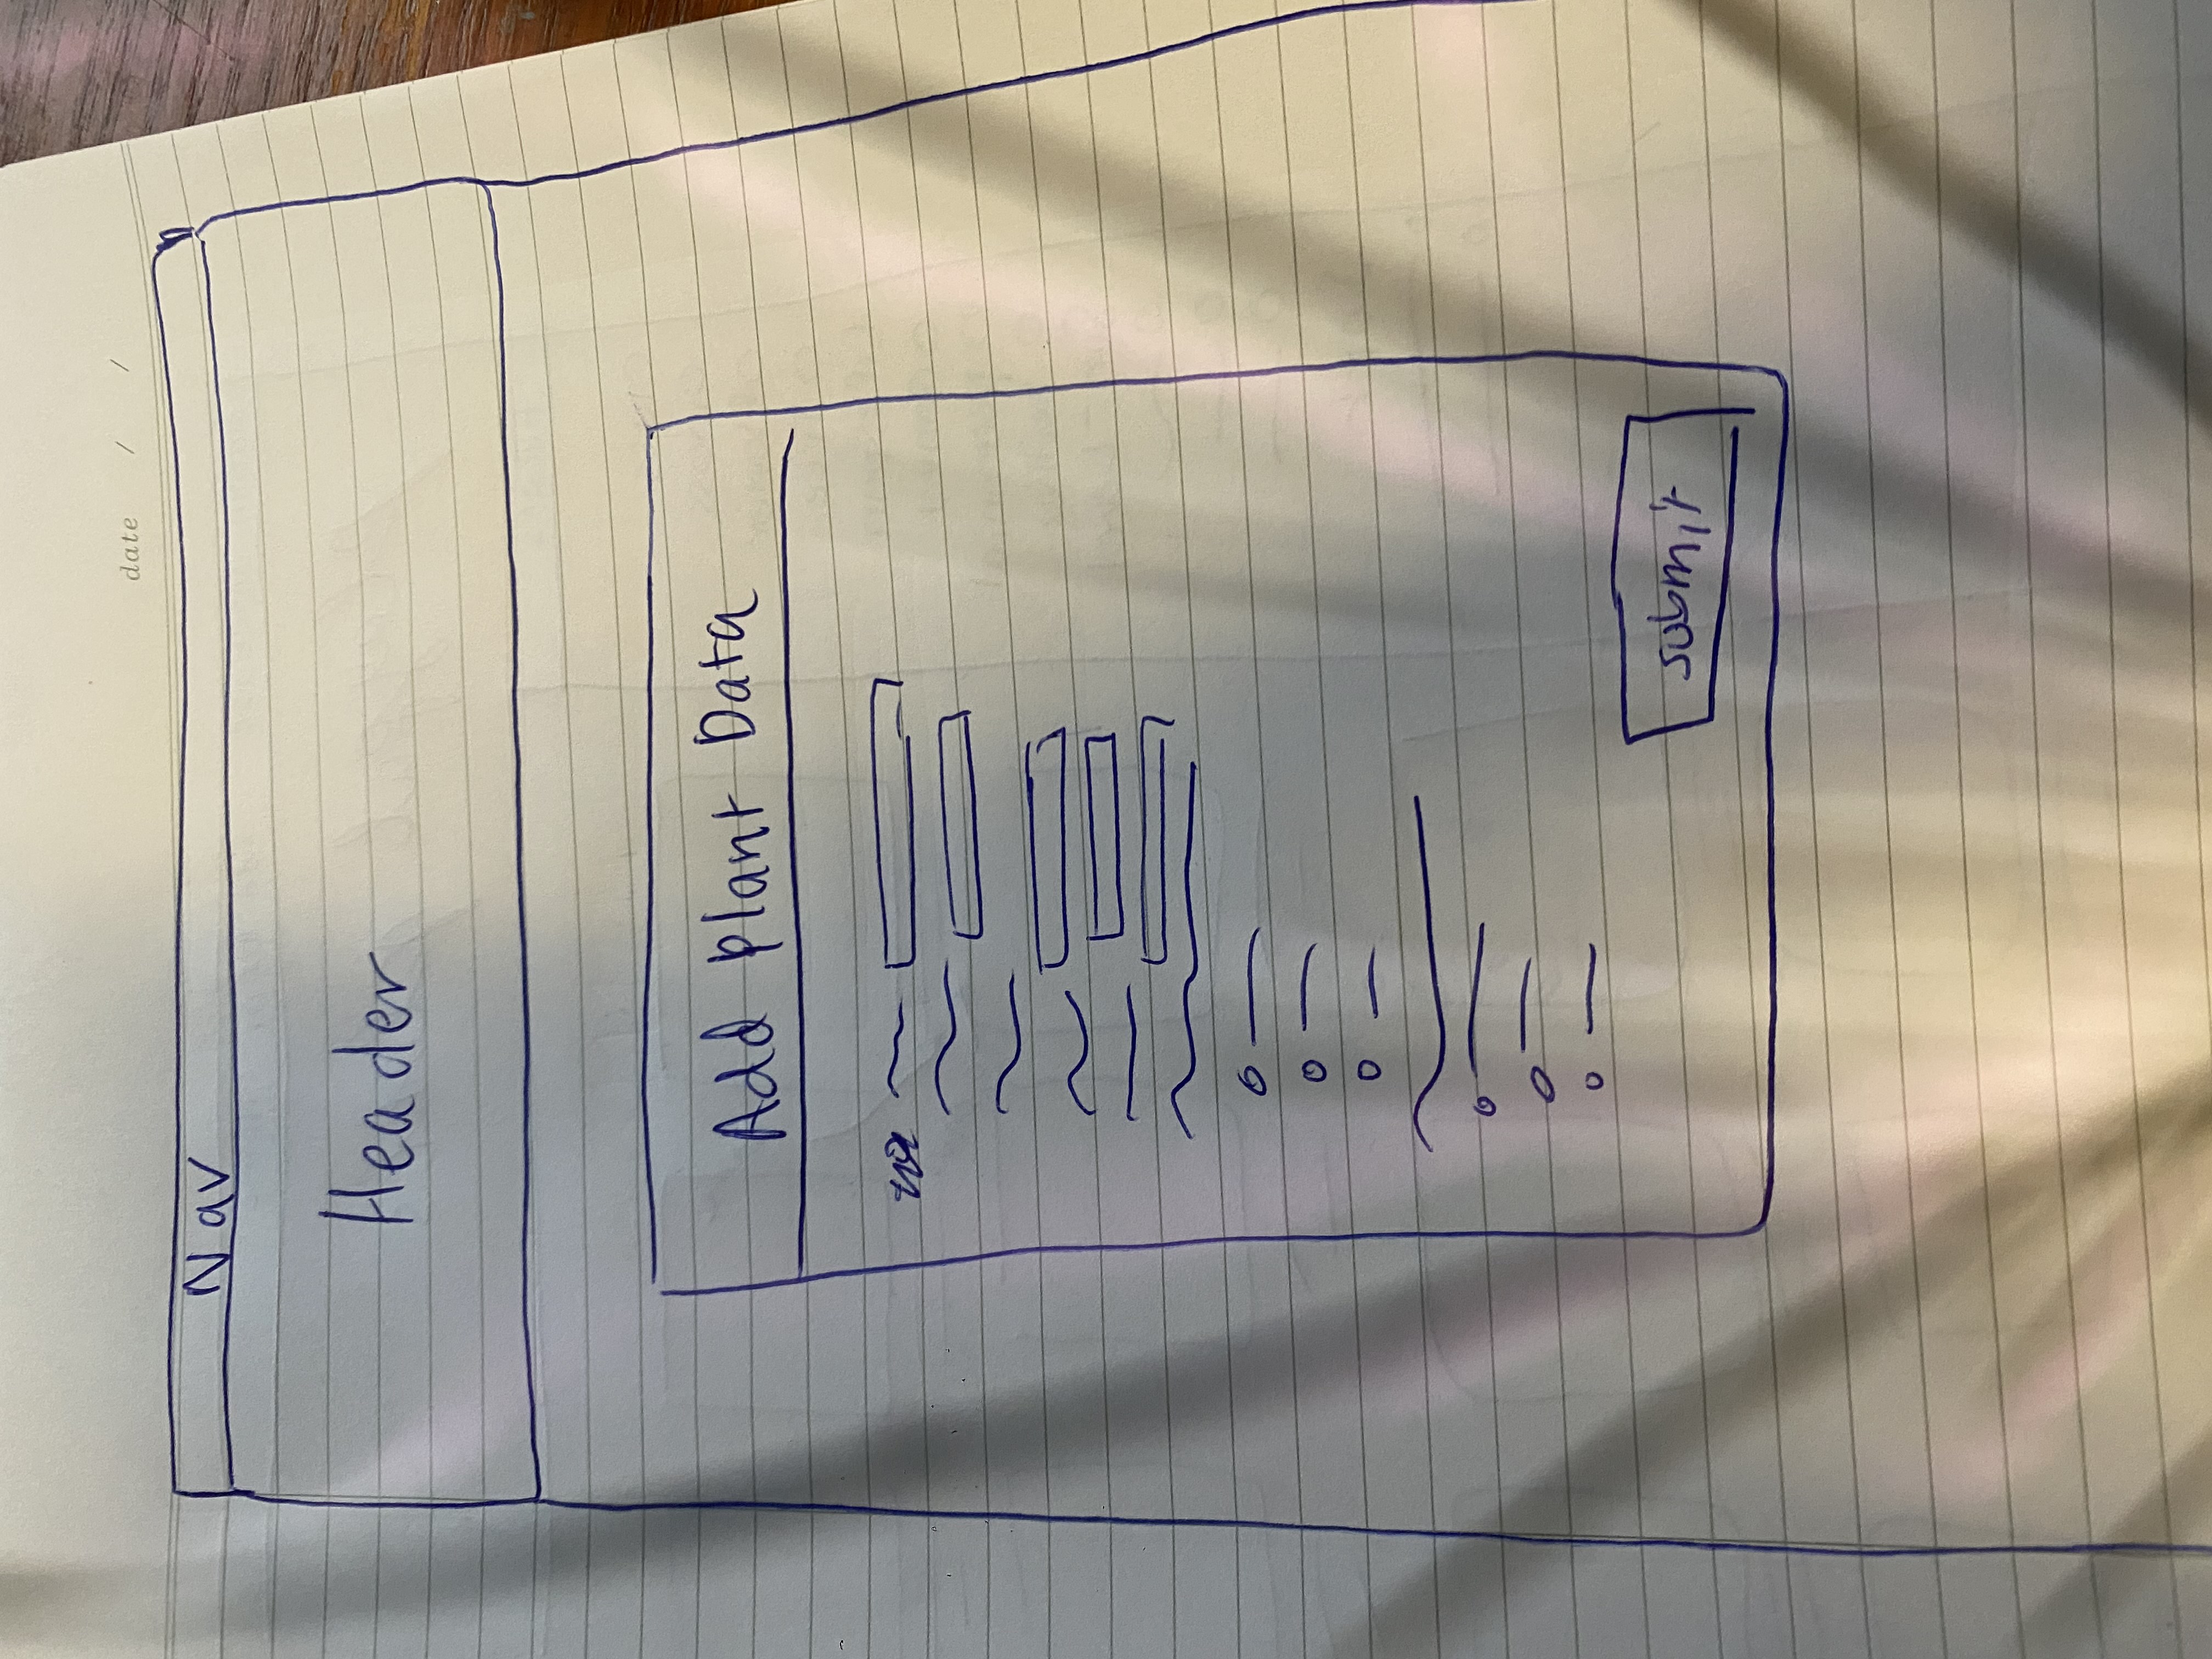 date / /
Nav
Header
Add Plant Data
submit